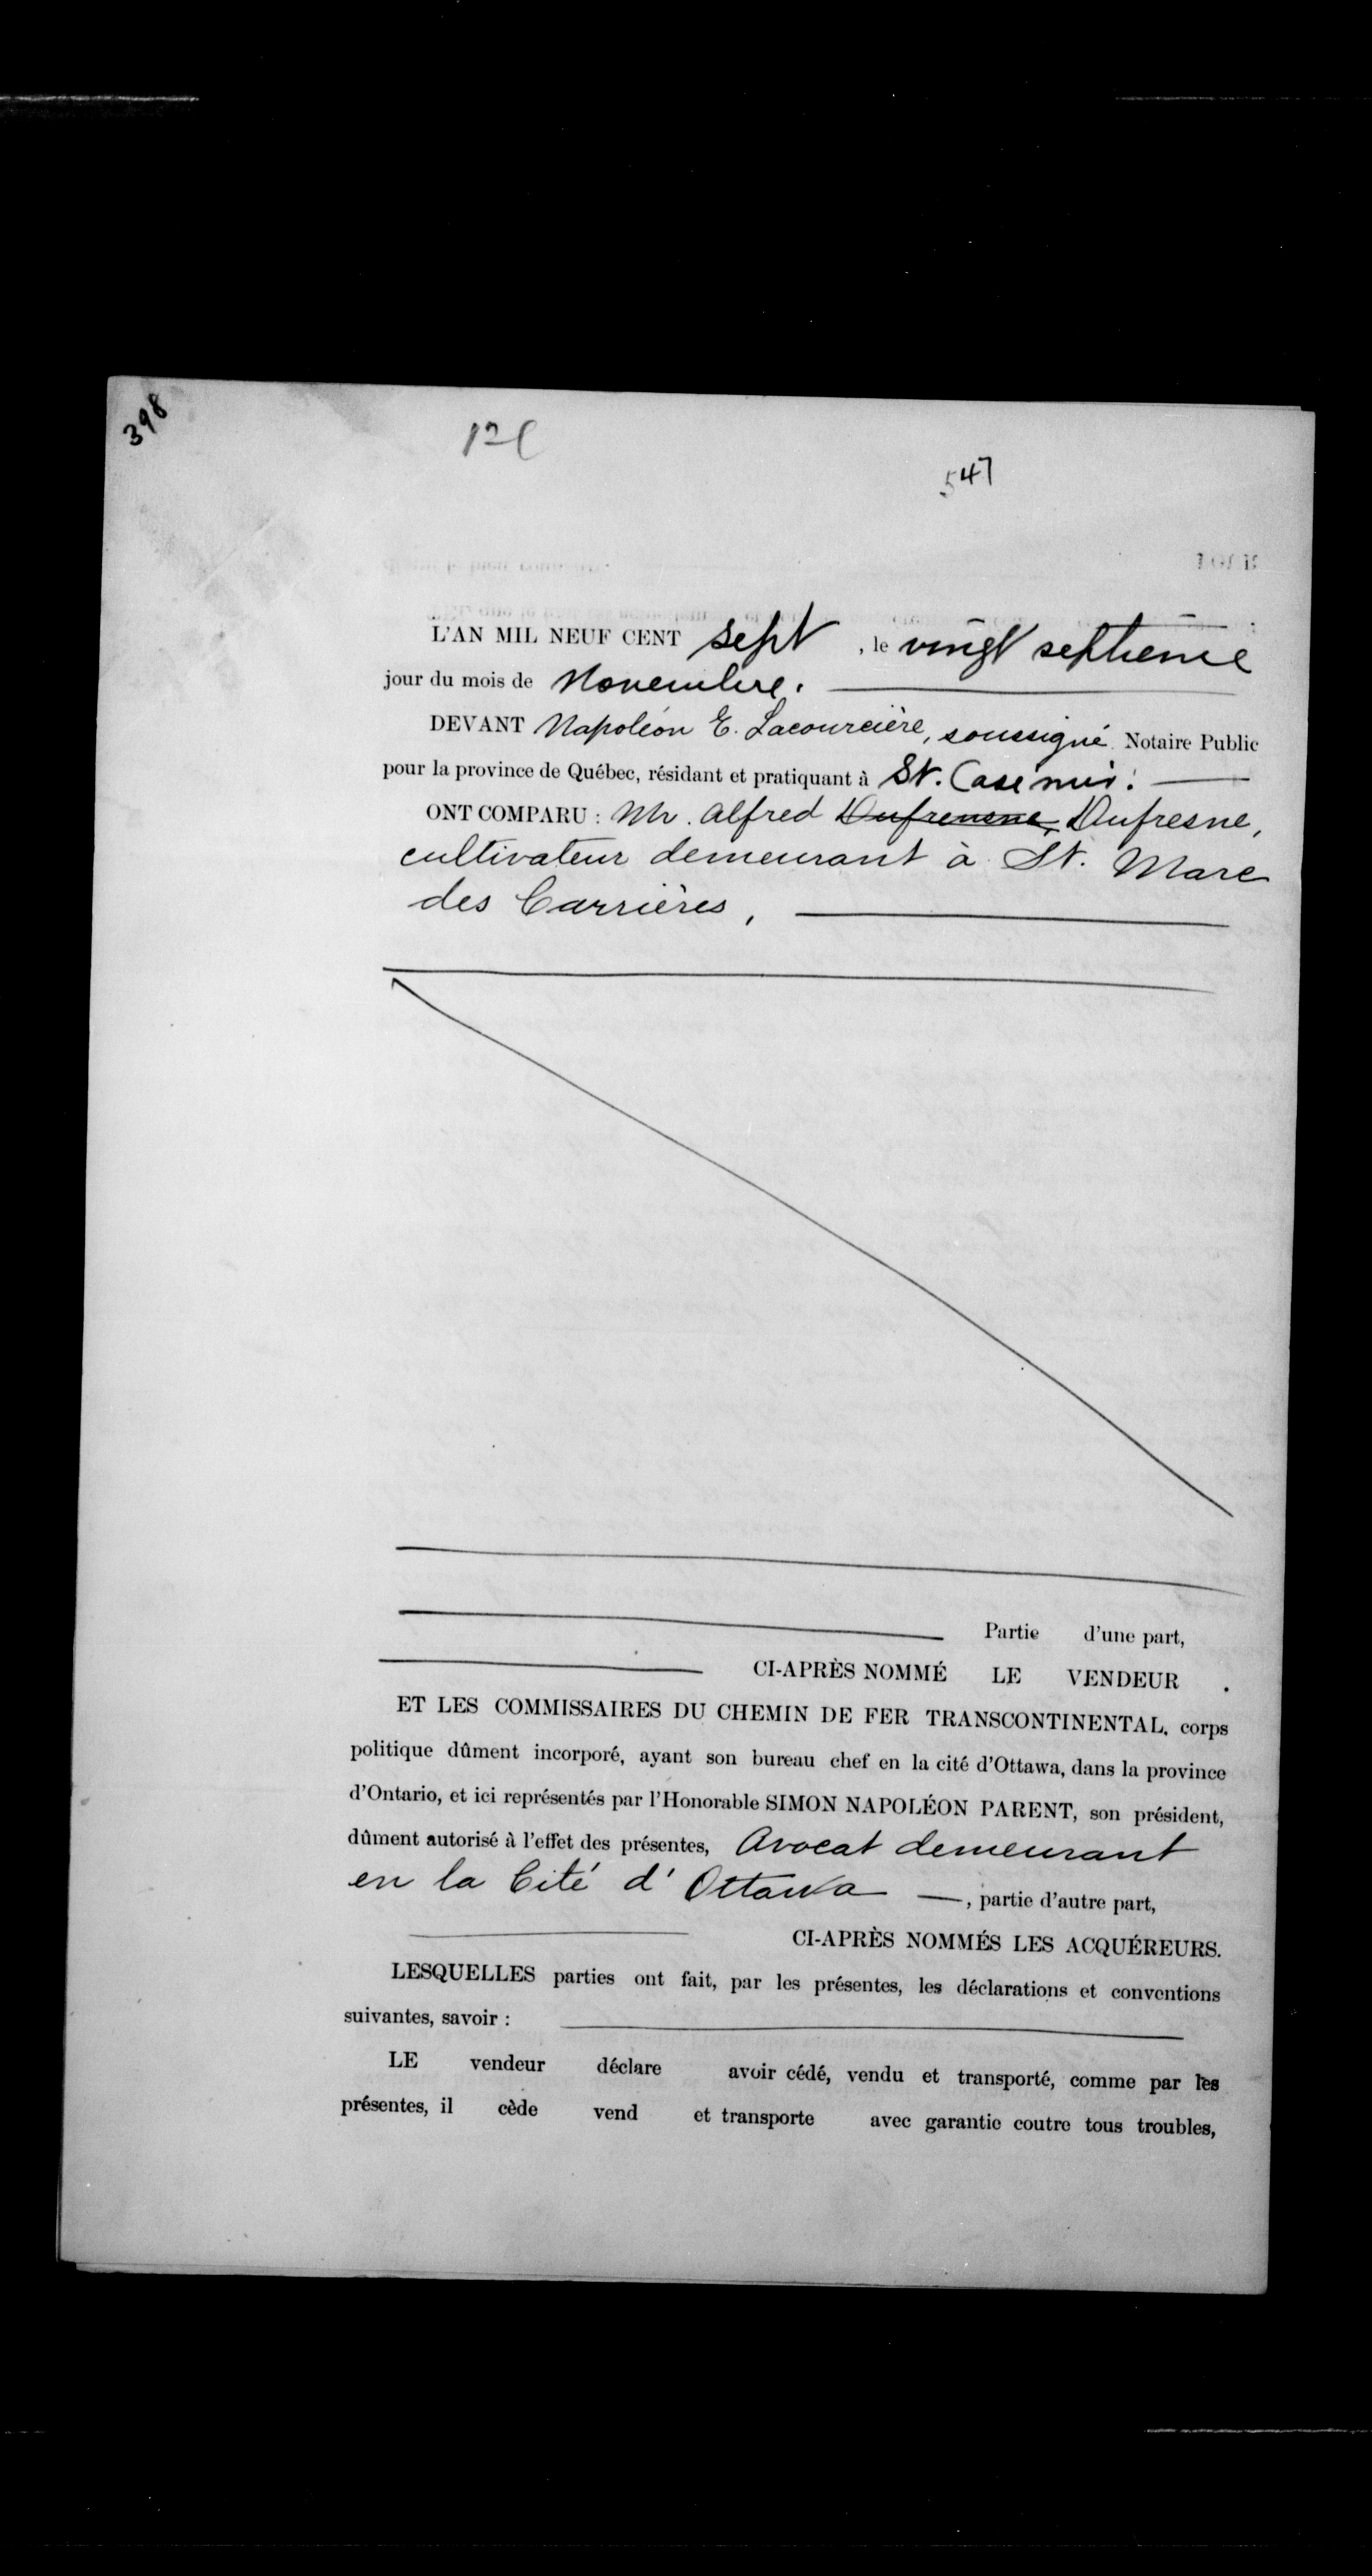 398
547
L'AN MIL NEUF CENT sept, le vingt septieme
jour du mois de Novembre.
DEVANT Napoléon E. Lacourcière, soussigné Notaire Public
pour la province de Québec, résidant et pratiquant à St. Casimir.
ONT COMPARU : Mr. Alfred Dufrensne, Dufresne,
cultivateur demeurant à St. Marc
des Carrières,
Partie d'une part,
CI-APRÈS NOMMÉ LE VENDEUR .
ET LES COMMISSAIRES DU CHEMIN DE FER TRANSCONTINENTAL, corps
politique dûment incorporé, ayant son bureau chef en la cité d'Ottawa, dans la province
d'Ontario, et ici représentés par l'Honorable SIMON NAPOLÉON PARENT, son président,
dûment autorisé à l'effet des présentes, Avocat demeurant
en la Cité d'Ottawa —, partie d'autre part,
CI-APRÈS NOMMÉS LES ACQUÉREURS.
LESQUELLES parties ont fait, par les présentes, les déclarations et conventions
suivantes, savoir :
LE vendeur déclare avoir cédé, vendu et transporté, comme par les
présentes, il cède vend et transporte avec garantie coutre tous troubles,